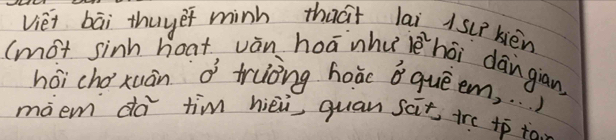 Viết bài thuyết minh thuật lại 1 sự kiện
(một sinh hoạt văn hoá như lễ hội dân gian,
hội chợ xuân ở trường hoặc ở quê em, ...)
mà em đã tìm hiểu, quan sát, trc tp